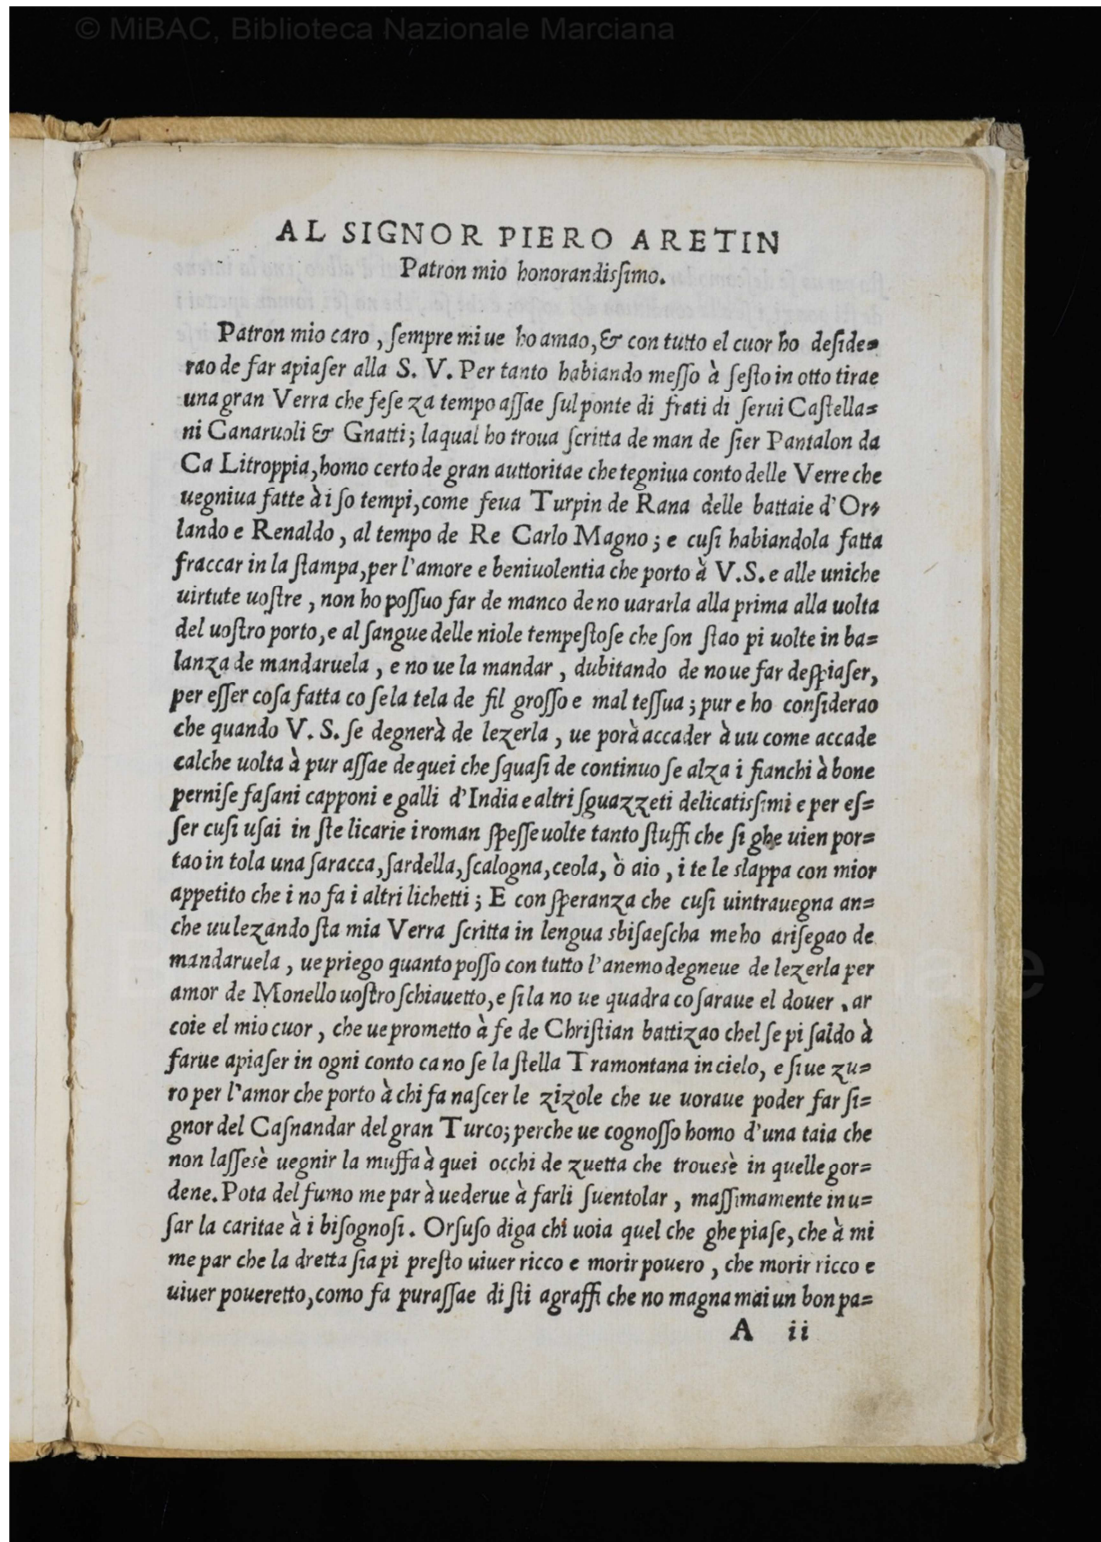 © MiBAC, Biblioteca Nazionale Marciana
AL SIGNOR PIERO ARETIN
Patron mio honorandiſsimo.
Patron mio caro, ſempre mi ue ho amao, & con tutto el cuor ho deſide=
rao de far apiaſer alla S. V. Per tanto habiando meſſo à ſeſto in otto tirae
una gran Verra che feſe za tempo aſſae ſul ponte di frati di ſerui Caſtella=
ni Canaruoli & Gnatti; laqual ho troua ſcritta de man de ſier Pantalon da
Ca Litroppia, homo certo de gran auttoritae che tegniua conto delle Verre che
uegniua fatte à i ſo tempi, come feua Turpin de Rana delle battaie d'Or=
lando e Renaldo, al tempo de Re Carlo Magno; e cuſi habiandola fatta
fraccar in la ſtampa, per l'amore e beniuolentia che porto à V.S. e alle uniche
uirtute uoſtre, non ho poſſuo far de manco de no uararla alla prima alla uolta
del uoſtro porto, e al ſangue delle niole tempeſtoſe che ſon ſtao pi uolte in ba=
lanza de mandaruela, e no ue la mandar, dubitando de no ue far deſpiaſer,
per eſſer coſa fatta co ſe la tela de fil groſſo e mal teſſua; pur e ho conſiderao
che quando V. S. ſe degnerà de lezerla, ue porà accader à uu come accade
calche uolta à pur aſſae de quei che ſquaſi de continuo ſe alza i fianchi à bone
perniſe faſani capponi e galli d'India e altri ſguazzeti delicatiſsimi e per eſ=
ſer cuſi uſai in ſte licarie i roman ſpeſſe uolte tanto ſtuffi che ſi ghe uien por=
tao in tola una ſaracca, ſardella, ſcalogna, ceola, ò aio, i te le slappa con mior
appetito che i no fa i altri lichetti; E con ſperanza che cuſi uintrauegna an=
che uu lezando ſta mia Verra ſcritta in lengua sbiſaeſcha me ho ariſegao de
mandaruela, ue priego quanto poſſo con tutto l'anemo degneue de lezerla per
amor de Monello uoſtro ſchiauetto, e ſi la no ue quadra co ſaraue el douer, ar
coie el mio cuor, che ue prometto à fe de Chriſtian battizao chel ſe pi ſaldo à
farue apiaſer in ogni conto ca no ſe la ſtella Tramontana in cielo, e ſi ue zu=
ro per l'amor che porto à chi fa naſcer le zizole che ue uoraue poder far ſi=
gnor del Caſnandar del gran Turco; perche ue cognoſſo homo d'una taia che
non laſſesè uegnir la muffa à quei occhi de zuetta che trouesè in quelle gor=
dene. Pota del fumo me par à uederue à farli ſuentolar, maſſimamente in u=
ſar la caritae à i biſognoſi. Orſuſo diga chi uoia quel che ghe piaſe, che à mi
me par che la dretta ſia pi preſto uiuer ricco e morir pouero, che morir ricco e
uiuer poueretto, como fa puraſſae di ſti agraffi che no magna mai un bon pa=
A ii